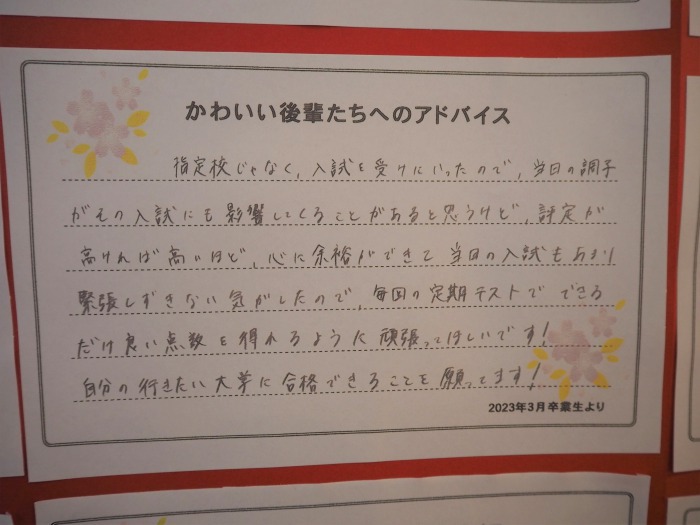 かわいい後輩たちへのアドバイス
指定校じゃなく、入試を受けにいったので、当日の調子
がその入試にも影響してくることがあると思うけど、評定が
高ければ高いほど、心に余裕ができて当日の入試もあまり
緊張しずぎない気がしたので、毎回の定期テストでできる
だけ良い点数を得れるように頑張ってほしいです!
自分の行きたい大学に合格できることを願ってます!
2023年3月卒業生より